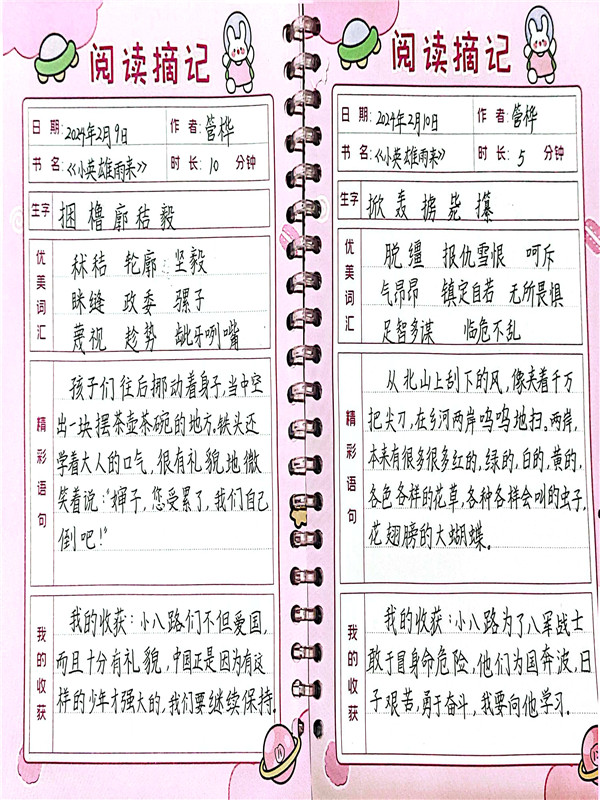 阅读摘记
日期:2024年2月9日 作者:管桦
书名:《小英雄雨来》 时长:10分钟
生字 捆 橹 廓 秸 毅
优美词汇
秫秸 轮廓 坚毅
眯缝 政委 骡子
蔑视 趁势 龇牙咧嘴
精彩语句
孩子们往后挪动着身子,当中空
出一块摆茶壶茶碗的地方.铁头还
学着大人的口气,很有礼貌地微
笑着说:"婶子,您受累了,我们自己
倒吧!"
我的收获
我的收获:小八路们不但爱国,
而且十分有礼貌,中国正是因为有这
样的少年才强大的,我们要继续保持.
阅读摘记
日期:2024年2月10日 作者:管桦
书名:《小英雄雨来》 时长:5分钟
生字 掀 轰 掳 毙 攥
优美词汇
脱缰 报仇雪恨 呵斥
气昂昂 镇定自若 无所畏惧
足智多谋 临危不乱
精彩语句
从北山上刮下的风,像夹着千万
把尖刀,在乡河两岸呜呜地扫。两岸,
本来有很多很多红的,绿的,白的,黄的,
各色各样的花草,各种各样会叫的虫子,
花翅膀的大蝴蝶。
我的收获
我的收获:小八路为了八军战士
敢于冒身命危险,他们为国奔波,日
子艰苦,勇于奋斗,我要向他学习.